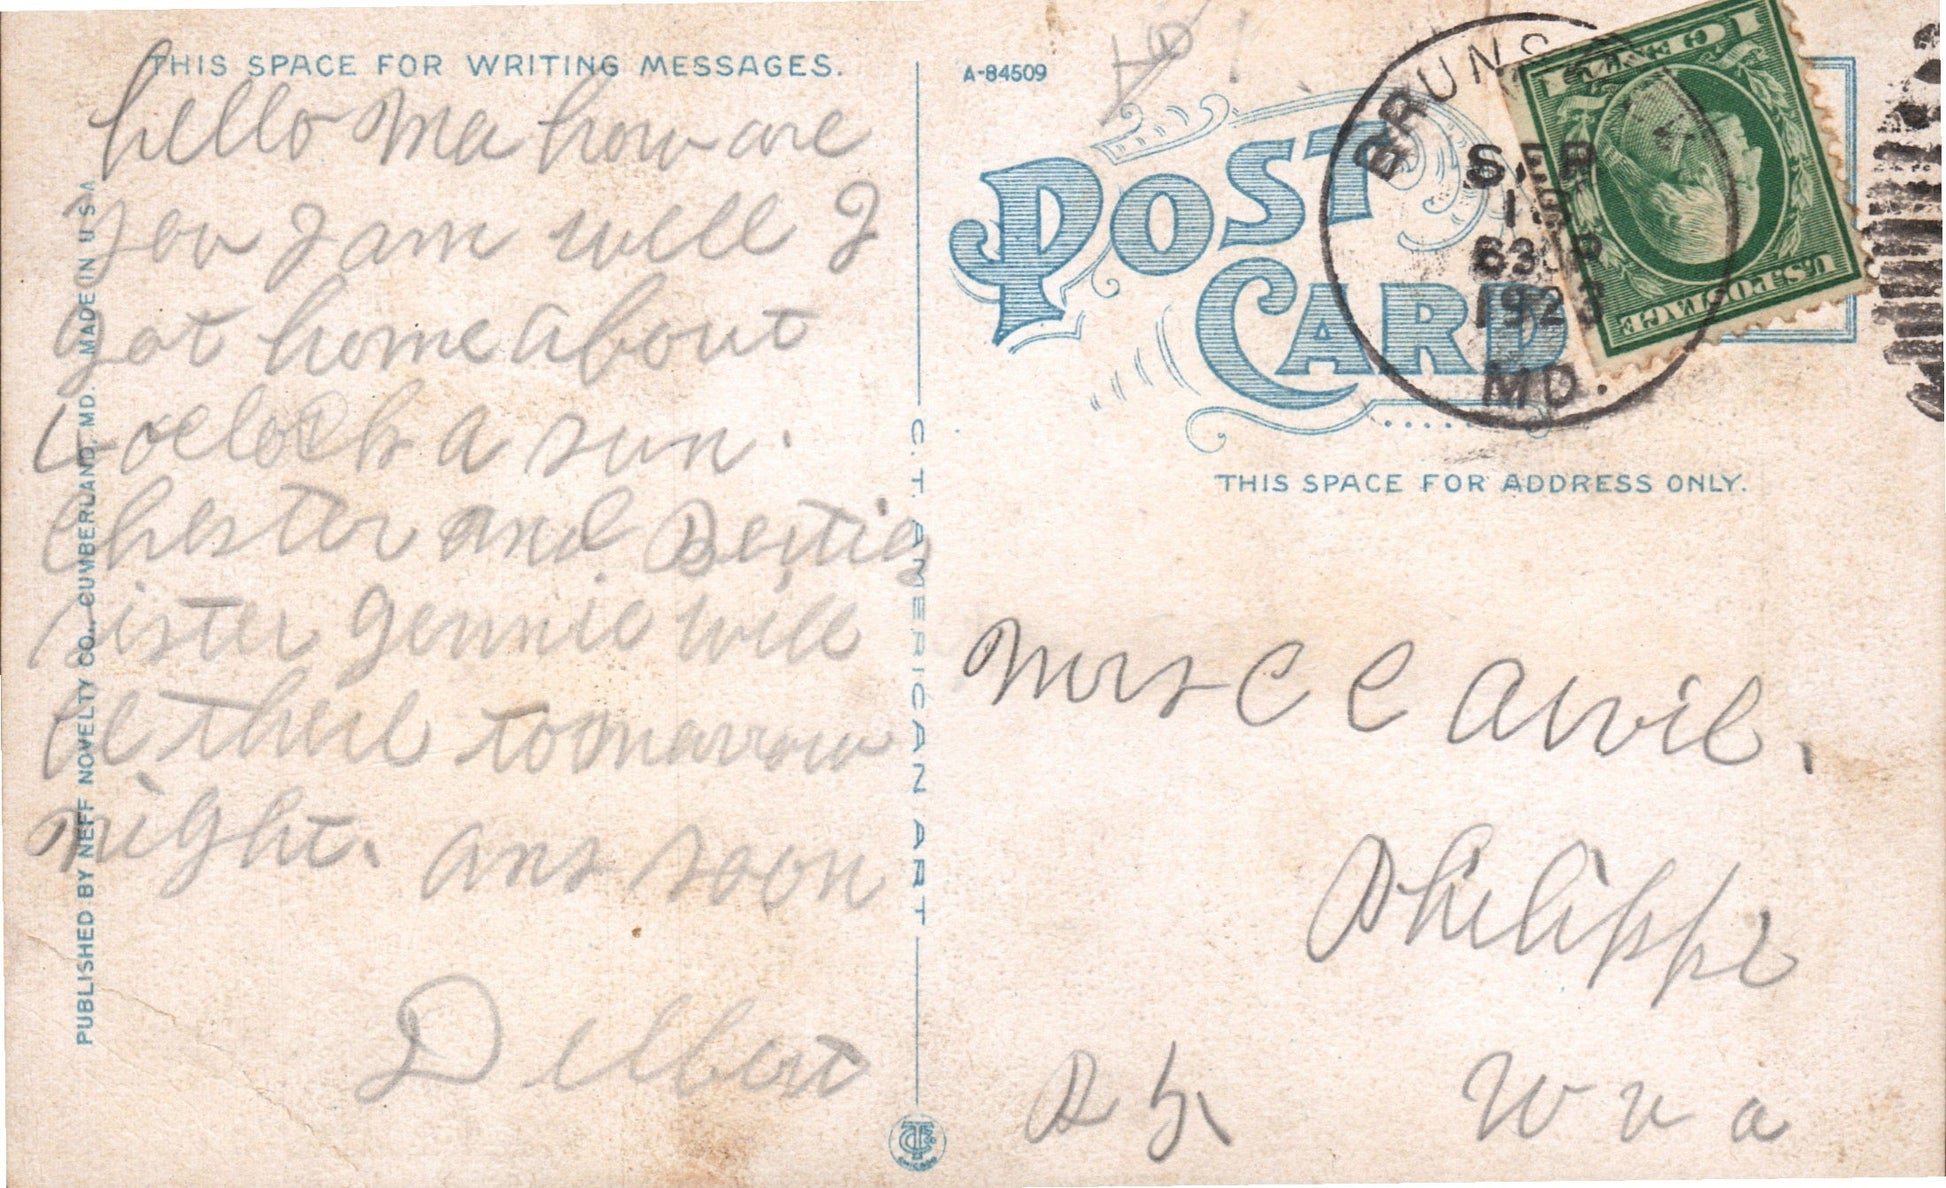 THIS SPACE FOR WRITING MESSAGES.
hello Ma how are
you I am well I
got home about
oclock a sun.
Chester and Berties
sister Jennie will
be theire tomarrow
night. ans soon
Delbert
PUBLISHED BY NEFF NOVELTY CO., CUMBERLAND, MD. MADE IN U S A
C. T. AMERICAN ART
A-84509
POST
CARD
BRUNS
SEP
1923
MD.
1 CENT 1
U.S. POSTAGE
THIS SPACE FOR ADDRESS ONLY.
Mrs C C Arvil,
Philippi
W va
CHICAGO